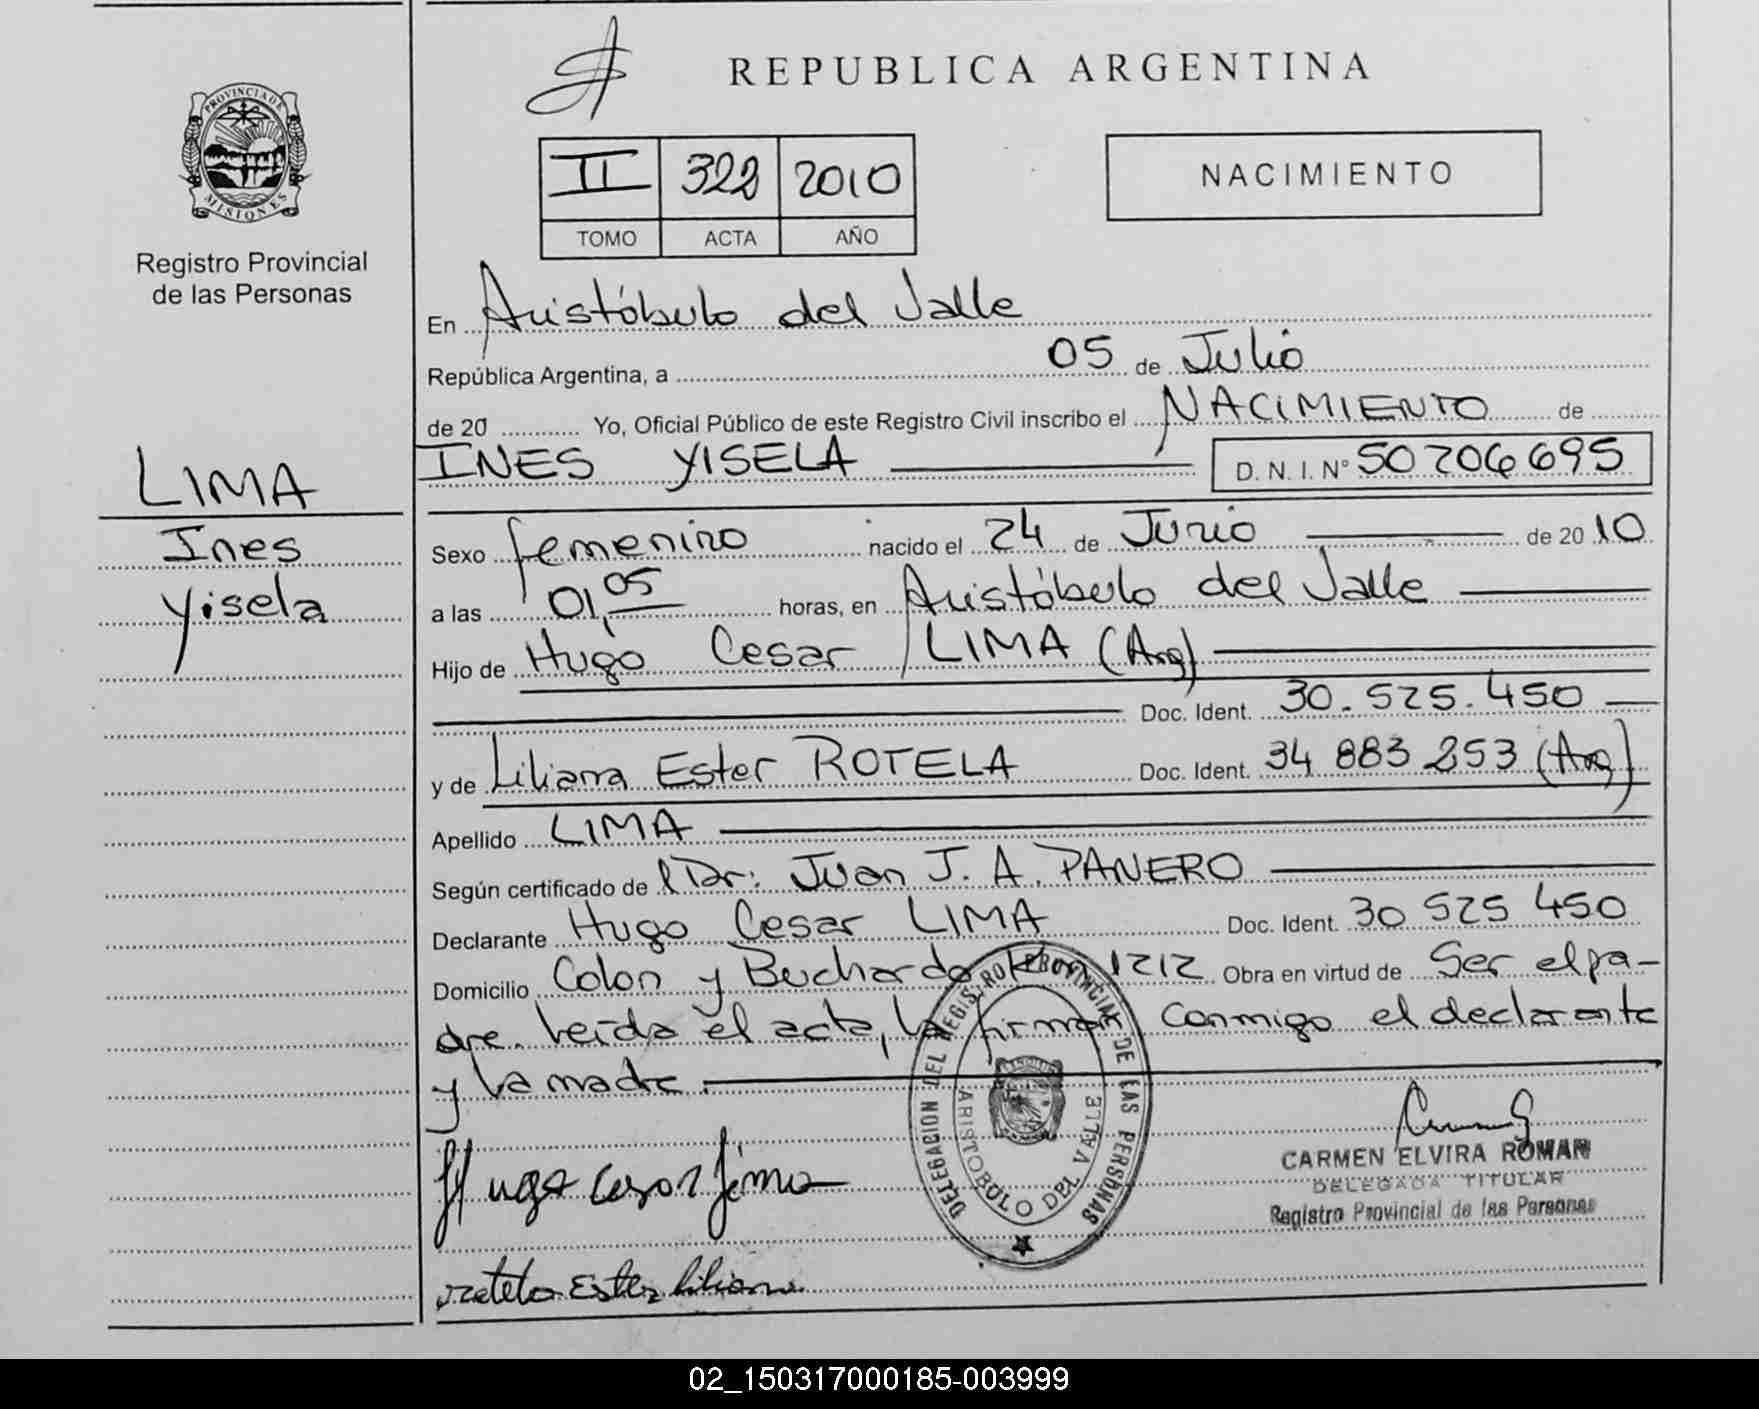 PROVINCIA DE
MISIONES
Registro Provincial
de las Personas
LIMA
Ines
Yisela
REPUBLICA ARGENTINA
II 322 2010
TOMO ACTA AÑO
NACIMIENTO
En Aristóbulo del Valle
República Argentina, a 05 de Julio
de 20 Yo, Oficial Público de este Registro Civil inscribo el NACIMIENTO de
INES YISELA D. N. I. N° 50706695
Sexo femenino nacido el 24 de Junio de 2010
a las 01,05 horas, en Aristóbulo del Valle
Hijo de Hugo Cesar LIMA (Arg)
Doc. Ident. 30.525.450
y de Liliana Ester ROTELA Doc. Ident. 34 883 253 (Arg)
Apellido LIMA
Según certificado de l Dr: Juan J. A. PANERO
Declarante Hugo Cesar LIMA Doc. Ident. 30 525 450
Domicilio Colon y Buchardo Km 1212 Obra en virtud de Ser el pa-
dre. leída el acta, la firman conmigo el declarante
y la madre.
DELEGACION DEL REGISTRO PROVINCIAL DE LAS PERSONAS
ARISTOBULO DEL VALLE
CARMEN ELVIRA ROMAN
DELEGADA TITULAR
Registro Provincial de las Personas
Hugo Cesar Lima
rotela Ester liliana
02_150317000185-003999